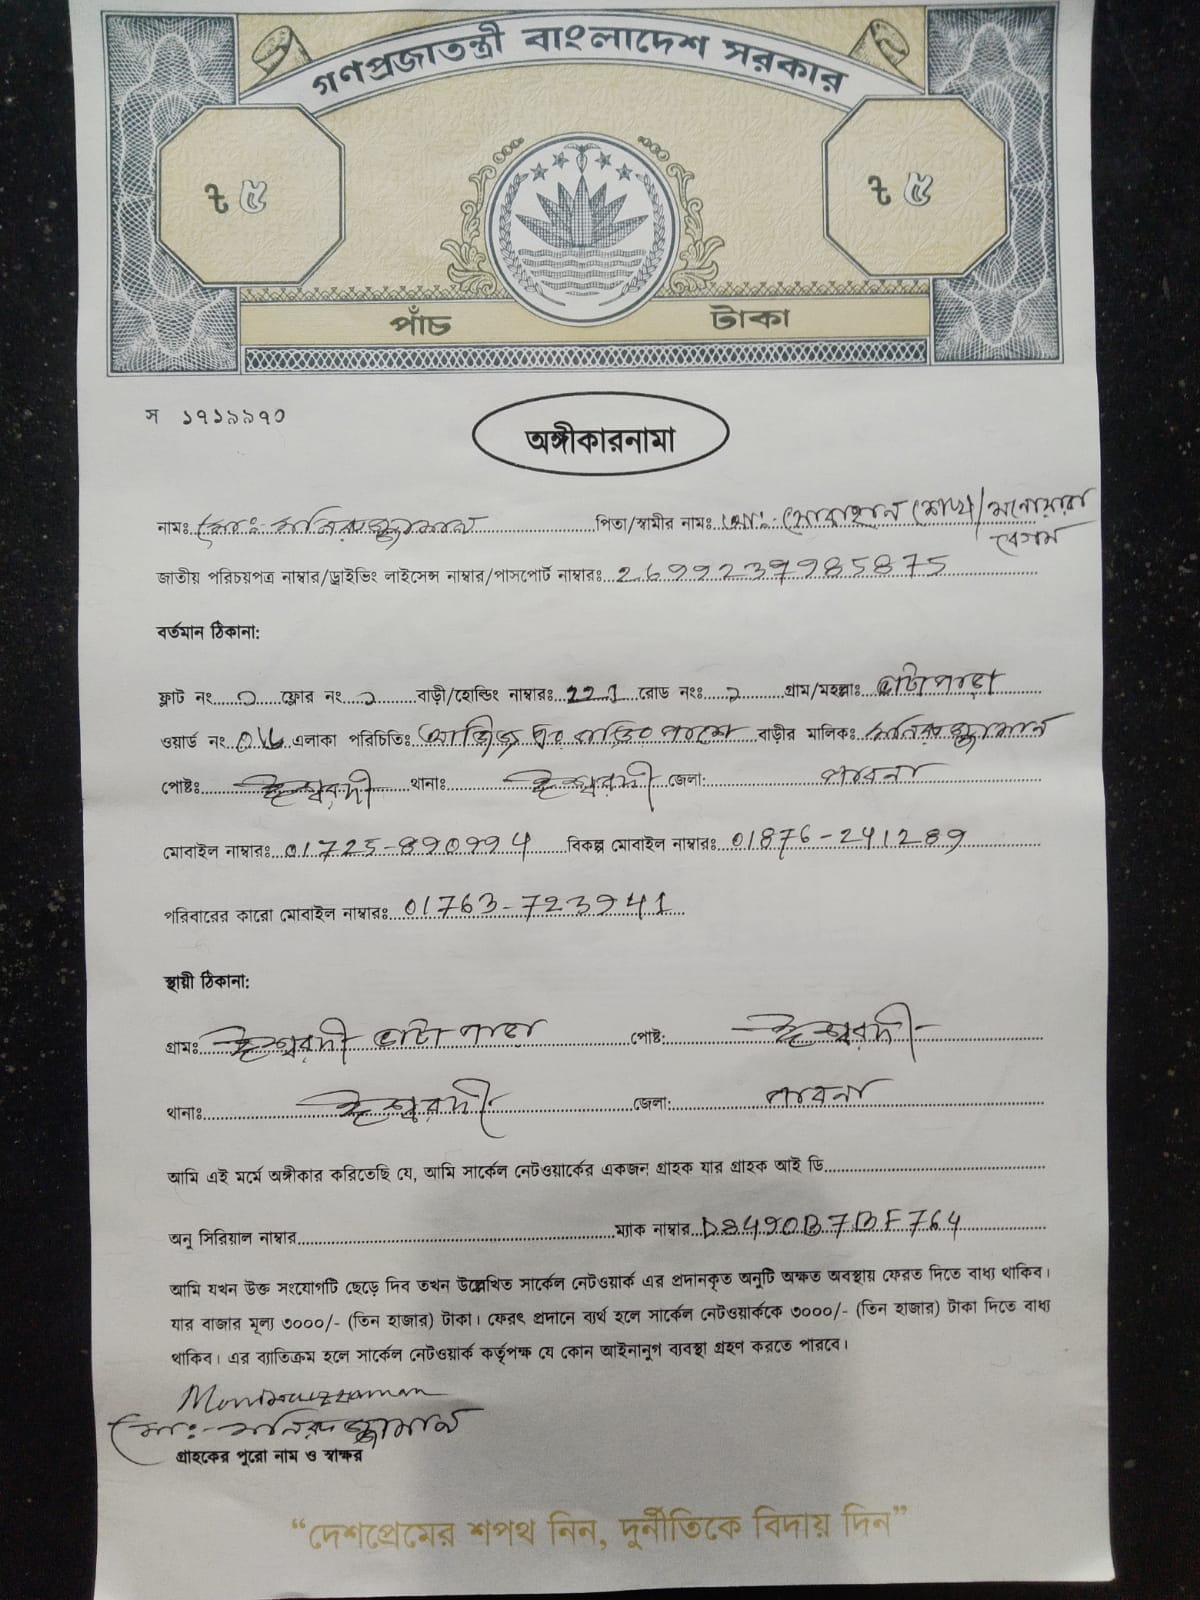 গণপ্রজাতন্ত্রী বাংলাদেশ সরকার
৳ ৫ ৳ ৫
পাঁচ টাকা
স ১৭১৯৯৭০
অঙ্গীকারনামা
নামঃ মোঃ- মনিরুজ্জামান পিতা/স্বামীর নামঃ মোঃ সোবাহান শেখ/ মনোয়ারা বেগম
জাতীয় পরিচয়পত্র নাম্বার/ড্রাইভিং লাইসেন্স নাম্বার/পাসপোর্ট নাম্বারঃ
বর্তমান ঠিকানা:
ফ্লাট নং ১ ফ্লোর নং ১ বাড়ী/হোল্ডিং নাম্বারঃ 221 রোড নংঃ ১ গ্রাম/মহল্লাঃ ভাটাপাড়া
ওয়ার্ড নং এলাকা পরিচিতিঃ বাড়ীর মালিকঃ মনিরুজ্জামান
পোষ্টঃ ঈশ্বরদী থানাঃ ঈশ্বরদী জেলা: পাবনা
মোবাইল নাম্বারঃ 01725-890994 বিকল্প মোবাইল নাম্বারঃ 01876-241289
পরিবারের কারো মোবাইল নাম্বারঃ 01763-723941
স্থায়ী ঠিকানা:
গ্রামঃ ঈশ্বরদী ভাটাপাড়া পোষ্ট: ঈশ্বরদী
থানাঃ ঈশ্বরদী জেলা: পাবনা
আমি এই মর্মে অঙ্গীকার করিতেছি যে, আমি সার্কেল নেটওয়ার্কের একজন গ্রাহক যার গ্রাহক আই ডি
অনু সিরিয়াল নাম্বার ম্যাক নাম্বার D8490B7BF764
আমি যখন উক্ত সংযোগটি ছেড়ে দিব তখন উল্লেখিত সার্কেল নেটওয়ার্ক এর প্রদানকৃত অনুটি অক্ষত অবস্থায় ফেরত দিতে বাধ্য থাকিব।
যার বাজার মূল্য ৩০০০/- (তিন হাজার) টাকা। ফেরৎ প্রদানে ব্যর্থ হলে সার্কেল নেটওয়ার্ককে ৩০০০/- (তিন হাজার) টাকা দিতে বাধ্য
থাকিব। এর ব্যাতিক্রম হলে সার্কেল নেটওয়ার্ক কর্তৃপক্ষ যে কোন আইনানুগ ব্যবস্থা গ্রহণ করতে পারবে।
Moniruzzaman
মোঃ- মনিরুজ্জামান
গ্রাহকের পুরো নাম ও স্বাক্ষর
“দেশপ্রেমের শপথ নিন, দুর্নীতিকে বিদায় দিন”